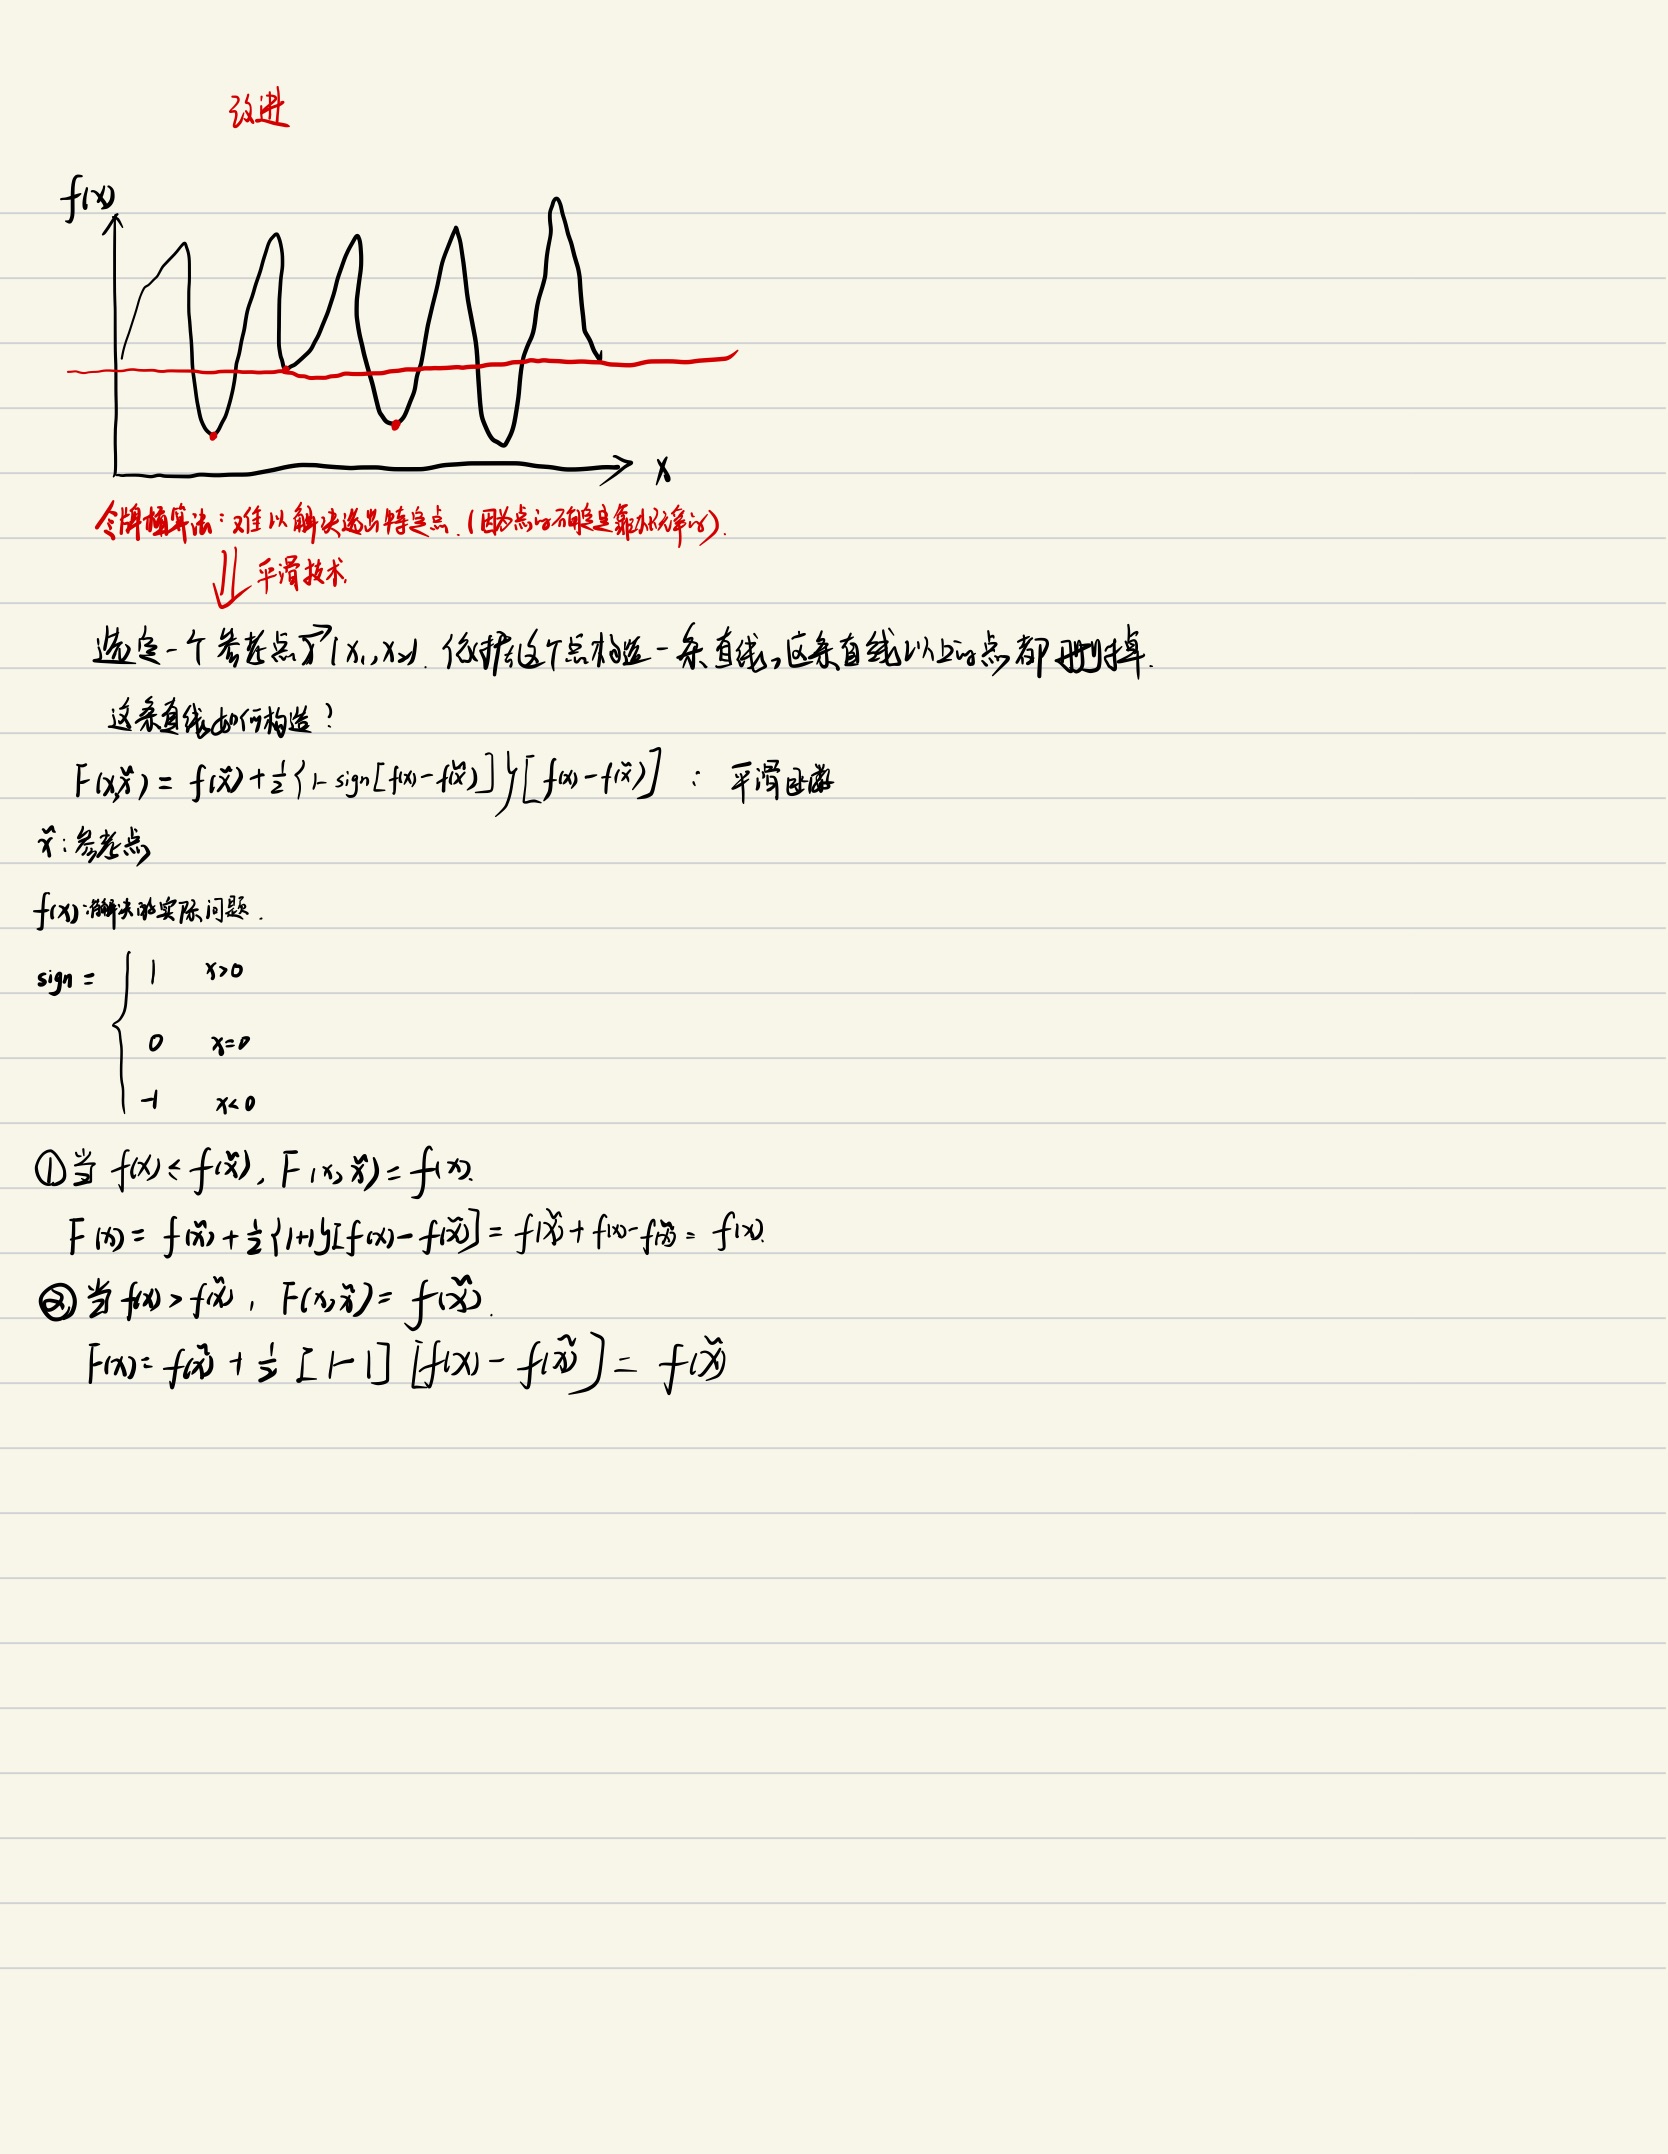 改进
f(x)
x
令牌桶算法：难以解决逃出特定点.(因为点的确定是靠概率的).
平滑技术.
选定一个参考点 x⃗(x₁,x₂). 依据这个点构造一条直线,这条直线以上的点都删掉.
这条直线如何构造?
F(x,x̃) = f(x̃) + ½{1- sign[f(x) - f(x̃)]}[f(x) - f(x̃)] : 平滑函数
x̃:参考点
f(x):解决的实际问题.
sign = { 1 x>0
0 x=0
-1 x<0
①当 f(x) ≤ f(x̃), F(x,x̃) = f(x).
F(x) = f(x̃) + ½{1+1}[f(x) - f(x̃)] = f(x̃) + f(x) - f(x̃) = f(x).
②当 f(x) > f(x̃), F(x,x̃) = f(x̃).
F(x) = f(x̃) + ½ [1-1] [f(x) - f(x̃)] = f(x̃)